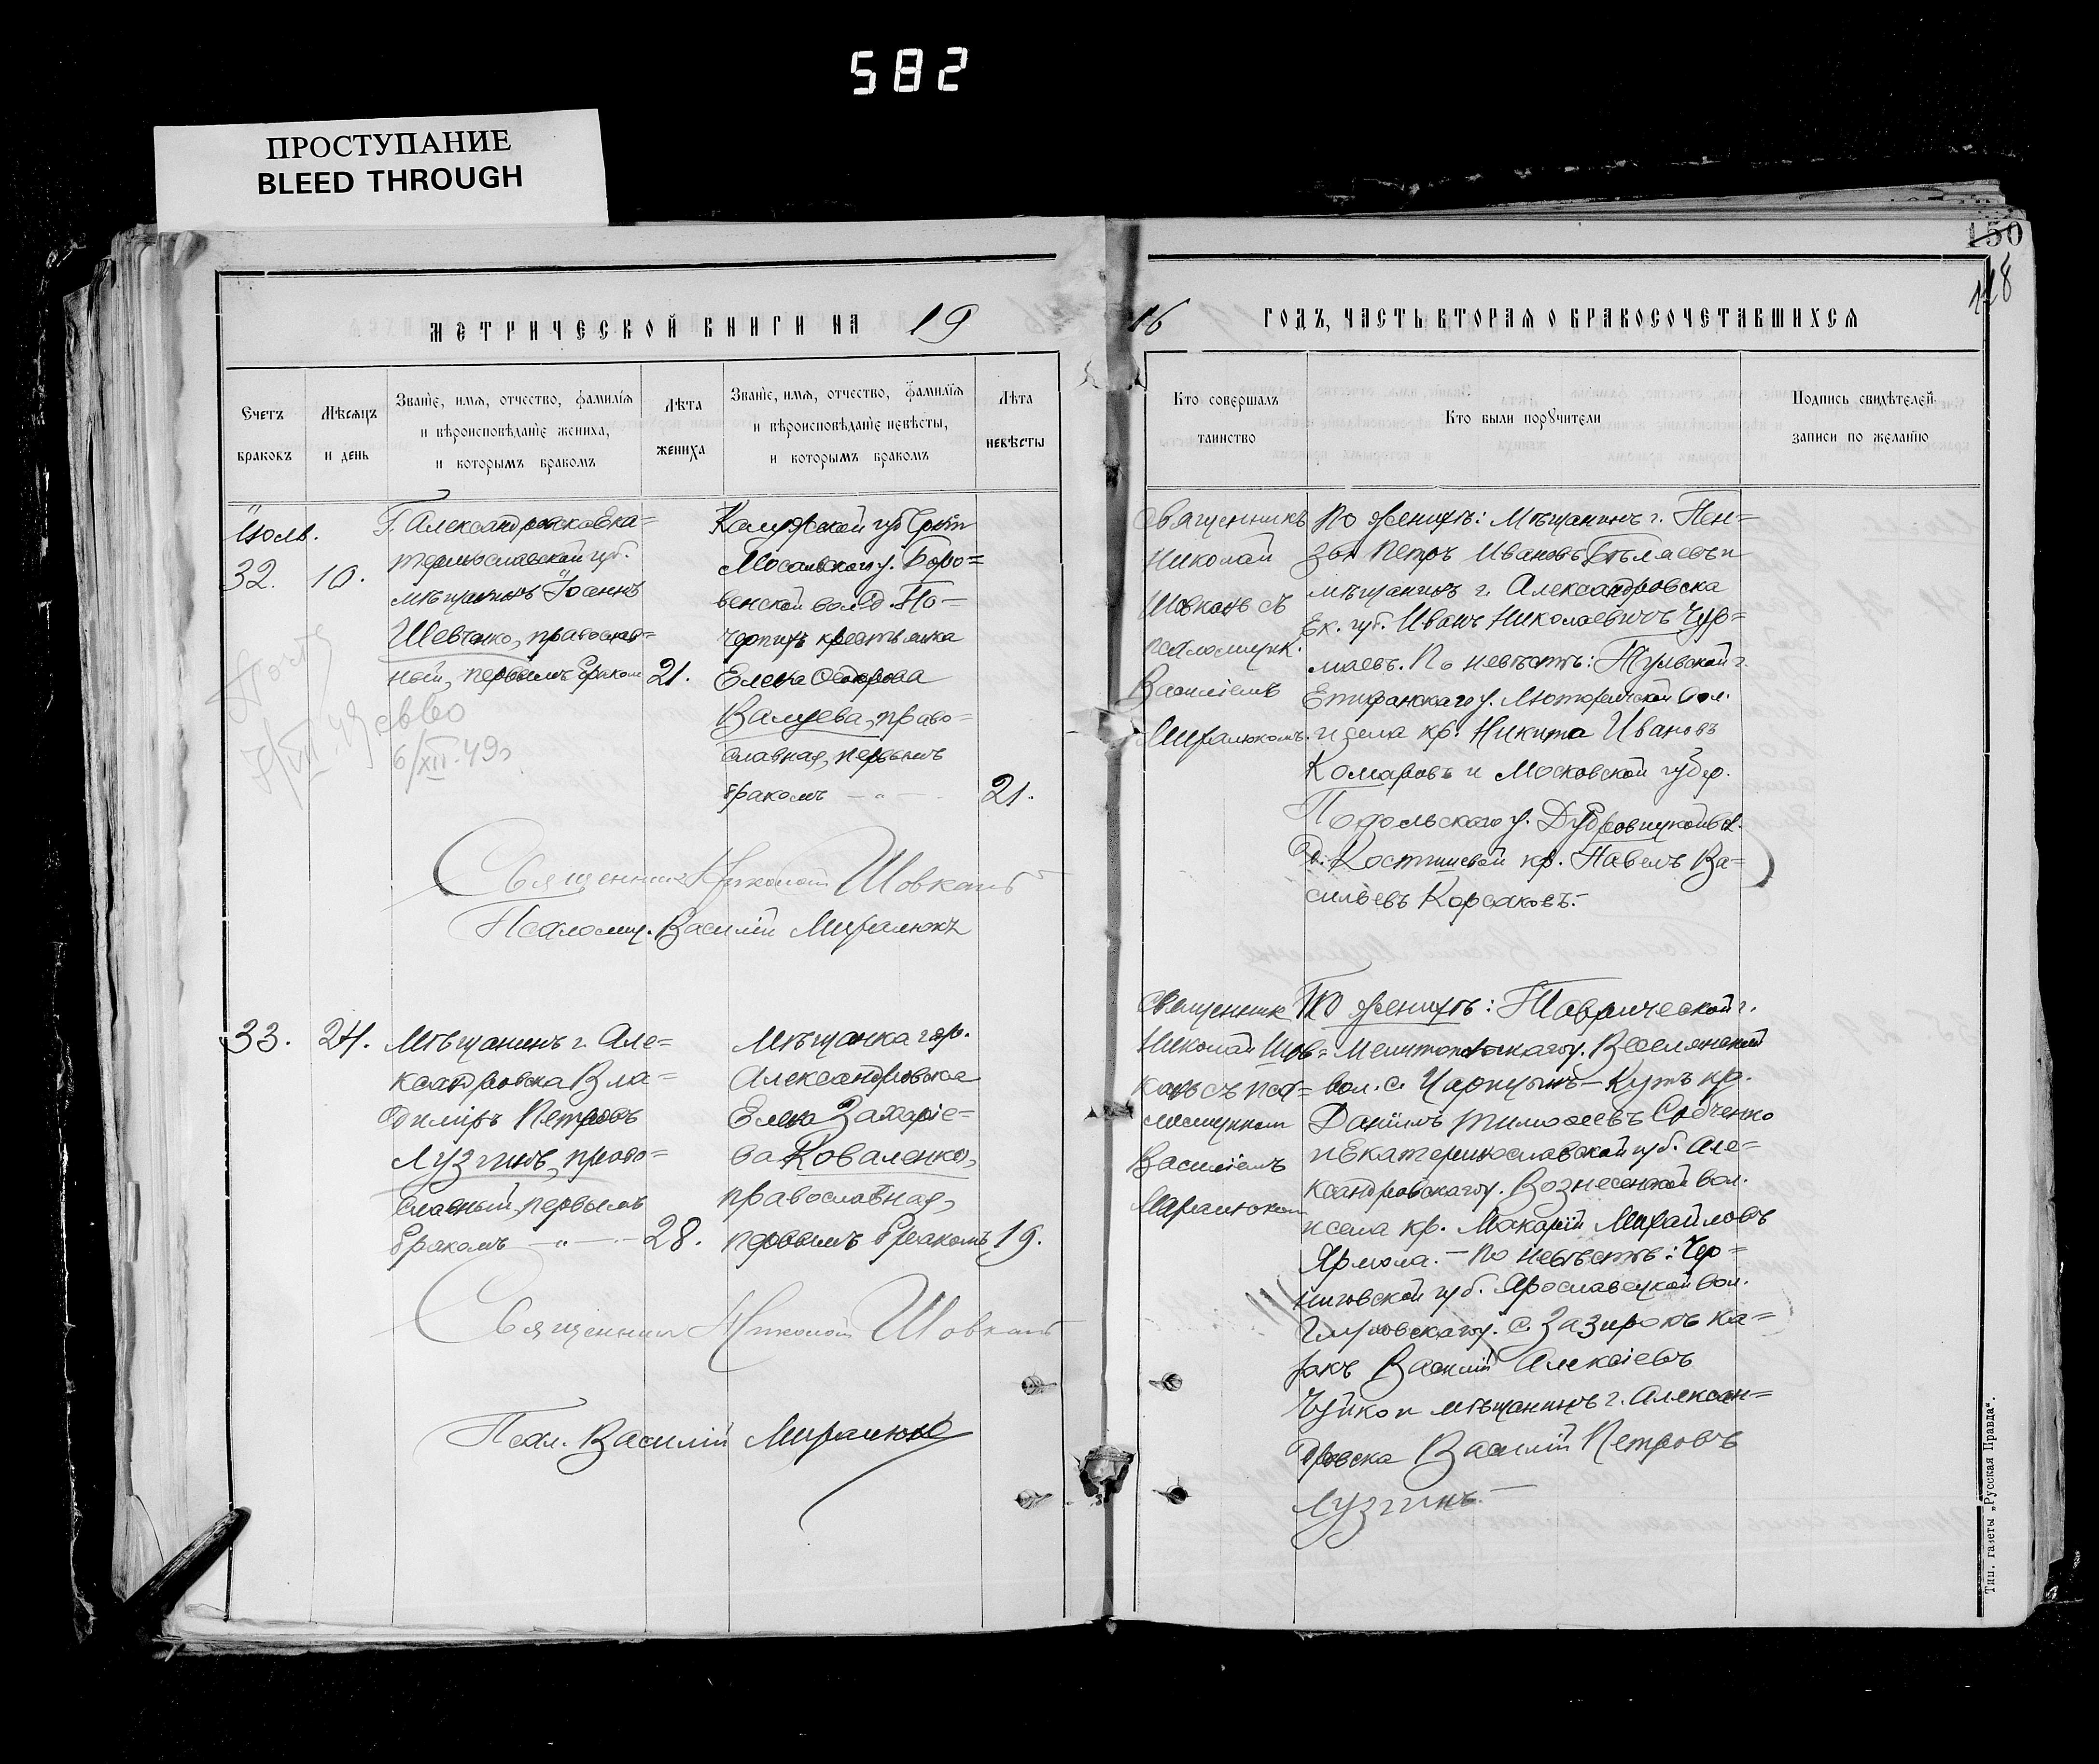 582
ПРОСТУПАНИЕ
BLEED THROUGH
150
МЕТРИЧЕСКОЙ КНИГИ НА 19
16 ГОДЪ, ЧАСТЬ ВТОРАЯ О БРАКОСОЧЕТАВШИХСЯ
Счетъ
браковъ
Мѣсяцъ
и день
Званіе, имя, отчество, фамилія
и вѣроисповѣданіе жениха,
и которымъ бракомъ
Лѣта
жениха
Званіе, имя, отчество, фамилія
и вѣроисповѣданіе невѣсты,
и которымъ бракомъ
Лѣта
невѣсты
Кто совершалъ
таинство
Кто были поручители
Подпись свидѣтелей
записи по желанію
32.
10.
Г. Александровска Ека=
теринославской губ.
мѣщанинъ Іоаннъ
Шевченко, православ=
ный, первымъ бракомъ
21.
Калужской губ
Мосальскаго у. Боро=
венской вол. д. По-
крестьянка
Елена
Валуева, право=
славная, первымъ
бракомъ — " —
21.
6/XII.49г
Священникъ
Николай
Шовкань съ
псаломщик.
Василіемъ
По женихѣ: Мѣщанинъ г. Пен=
зы Петръ Ивановъ Бѣляевъ и
мѣщанинъ г. Александровска
Ек. губ. Иванъ Николаевичъ Чур=
маевъ. По невѣстѣ: Тульской г.
Епифанскаго у. вол.
и села кр. Никита Ивановъ
Комаровъ и Московской губер.
Подольскаго у. Дубровицкой вол.
д. кр. Павелъ Ва=
сильевъ Корсаковъ.-
Священникъ Николай Шовкань
Псаломщ. Василій
33.
24.
Мѣщанинъ г. Але=
ксандровска Вла=
диміръ Петровъ
Лузгинъ, право=
славный, первымъ
бракомъ — " —
28.
Мѣщанка гор.
Александровска
Елена Захаріе=
ва Коваленко,
православная,
первымъ бракомъ
19.
Священник
Николай Шов=
кань съ пса=
ломщиком
Василіемъ
По женихѣ: Таврической г.
Мелитопольскаго у. Веселянской
вол. с. Царицынъ-Кутъ кр.
Даніилъ Тимофеевъ
и Екатеринославской губ. Але=
ксандровскаго у. Вознесенской вол.
и села кр. Макарій Михайловъ
Ярмола. - По невѣстѣ: Чер=
ниговской губ. Ярославецкой вол.
Глуховскаго у. с. Зазирокъ ка=
закъ Василій Алексіевъ
Чуйко и мѣщанинъ г. Алексан=
дровска Василій Петровъ
Лузгинъ.-
Священникъ Николай Шовкань
Псал. Василій
Тип. газеты „Русская Правда“.